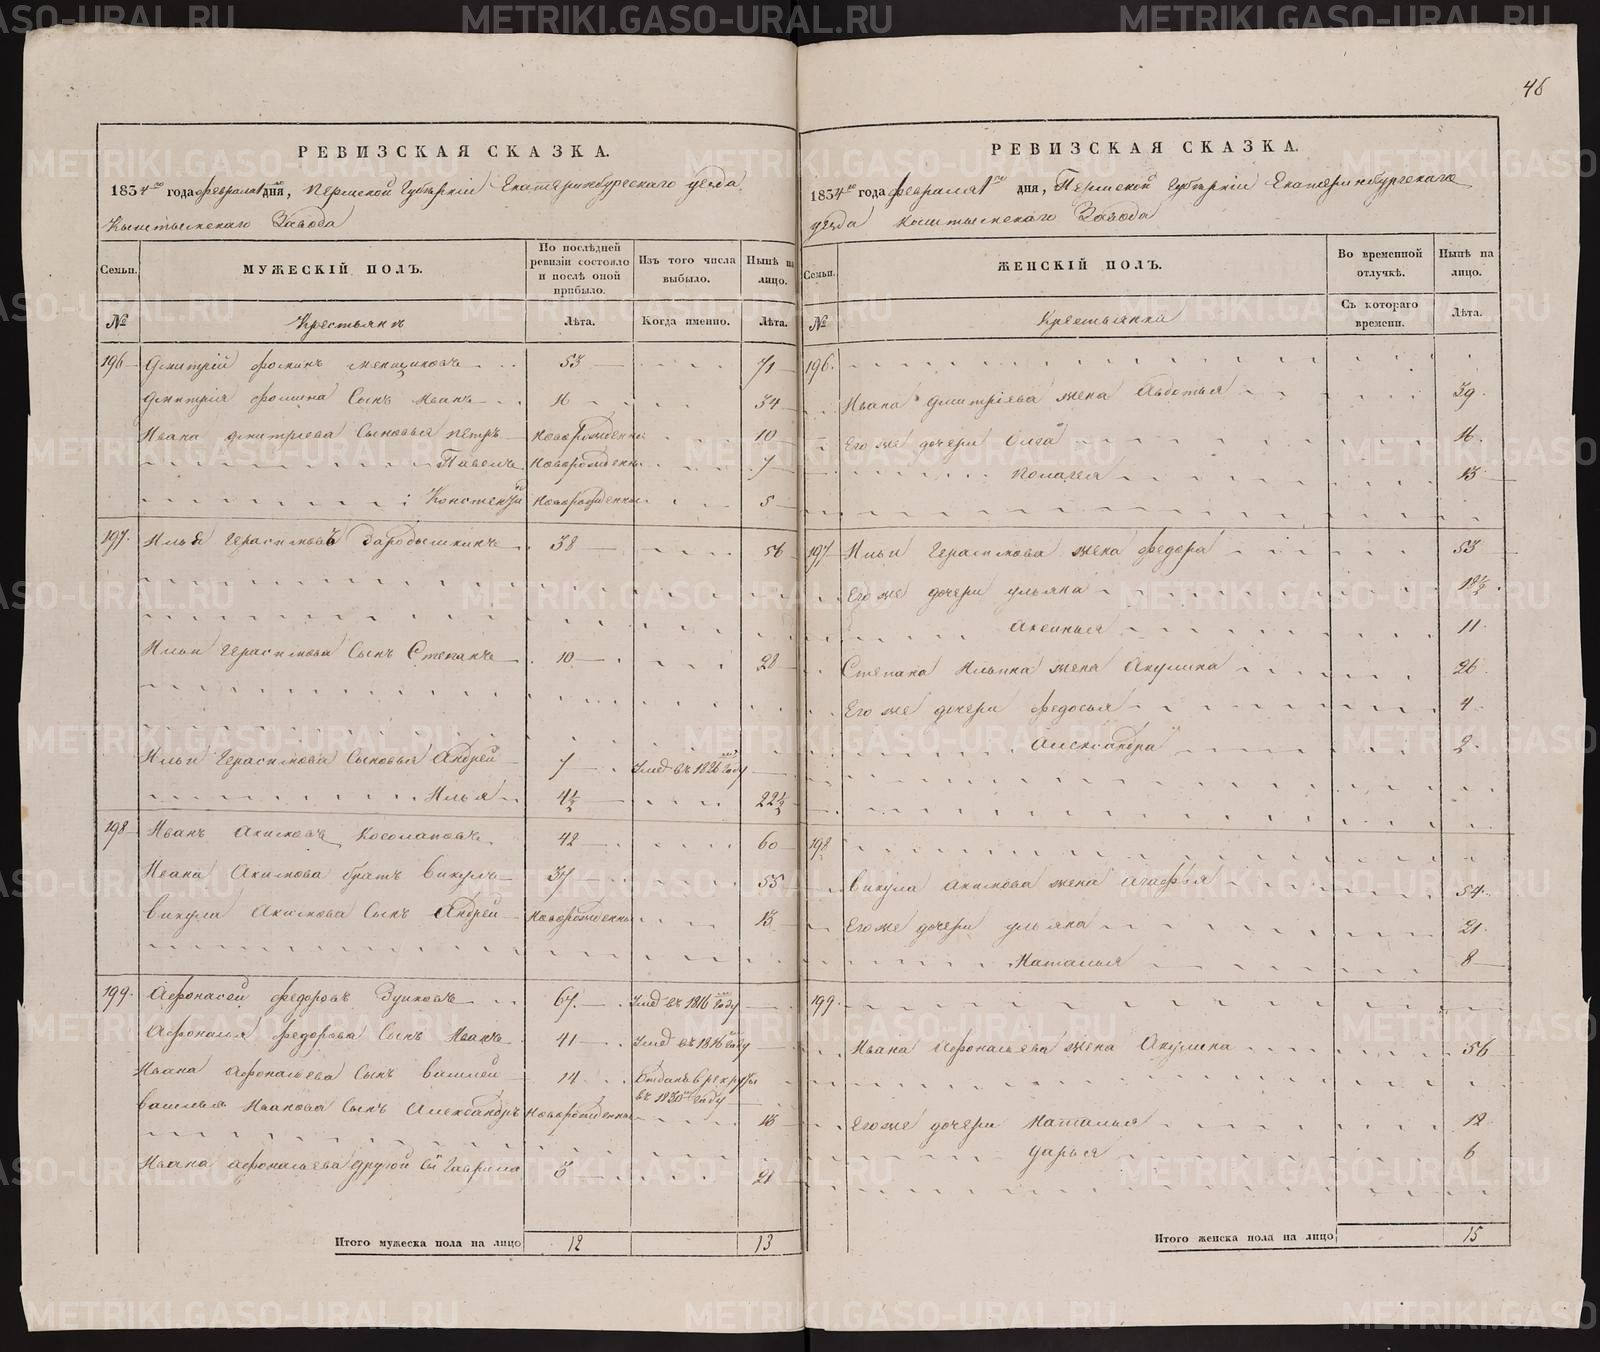 46
РЕВИЗСКАЯ СКАЗКА.
1834го года февраля 1го дня, Пермской Губернiи Екатеринбургскаго уезда
Кыштымскаго Завода
Семьи.
МУЖЕСКIЙ ПОЛЪ.
По послѣдней ревизiи состояло и послѣ оной прибыло.
Изъ того числа выбыло.
Нынѣ на лицо.
№
Крестьянъ
Лѣта.
Когда именно.
Лѣта.
196 Дмитрiй Фоминъ Менщиковъ 53 71
Дмитрiя Фомина Сынъ Иванъ 16 34
Ивана Дмитрiева Сыновья Петръ Новорожденны 10
Павелъ Новорожденны 7
Новорожденны 5
197. Илья Герасимовъ Зародышкинъ 38 56
Ильи Герасимова Сынъ Степанъ 10 28
Ильи Герасимова Сыновья Андрей 7 Умер въ 1826 году
Илья 4½ 22½
198 Иванъ Акимовъ Косолаповъ 42 60
Ивана Акимова братъ Викулъ 37 55
Викула Акимова Сынъ Андрей Новорожденны 13
199. Афонасей Федоровъ Зуиковъ 67 Умер въ 1816 году
Афонасья Федорова Сынъ Иванъ 41 Умер въ 1816 году
Ивана Афонасьева Сынъ Василей 14 Отданъ в рекруты
въ 1830 году
Василья Иванова Сынъ Александръ Новорожденны 13
Ивана Афонасьева другой Сынъ Гаврила 3 21
Итого мужеска пола на лицо 12 13
РЕВИЗСКАЯ СКАЗКА.
1834го года февраля 1го дня, Пермской Губернiи Екатеринбургскаго
уезда Кыштымскаго Завода
Семьи.
ЖЕНСКIЙ ПОЛЪ.
Во временной отлучкѣ.
Нынѣ на лицо.
№
Крестьянка
Съ котораго времени.
Лѣта.
196.
Ивана Дмитрiева жена Авдотья 39.
Его же дочери Олга 16.
Полагея 13
197 Ильи Герасимова жена Федора 53
Его же дочери Ульяна 18½
Аксинья 11.
Степана Ильина жена Акулина 26
Его же дочери Федосья 4
Александра 2
198
Викула Акимова жена Агафья 54.
Его же дочери Ульяна 21.
Наталья 8
199.
Ивана Афонасьева жена Акулина 56
Его же дочери Наталья 12
Дарья 6
Итого женска пола на лицо 15
METRIKI.GASO-URAL.RU